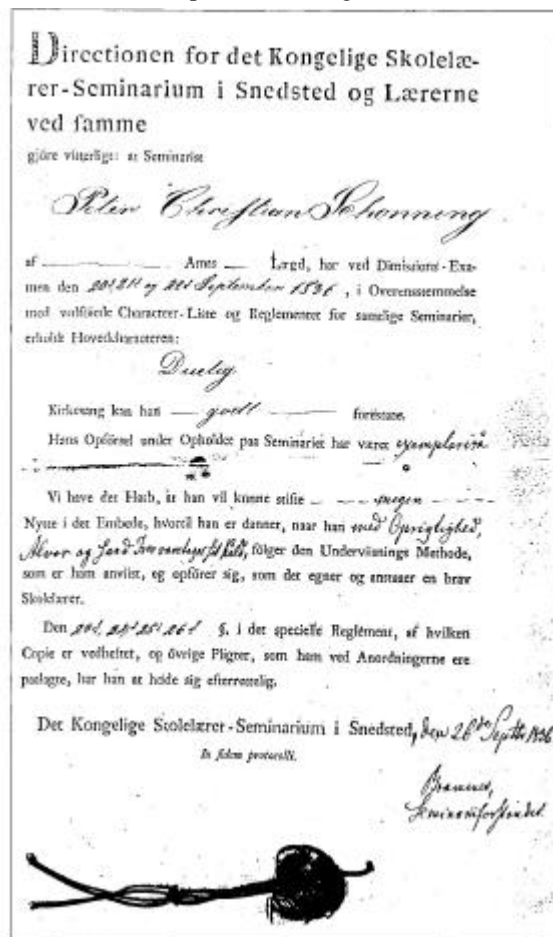 Directionen for det Kongelige Skolelæ-
rer-Seminarium i Snedsted og Lærerne
ved samme
gjöre vitterligt: at Seminarist
Peter Christian Schonning
af Amts Lægd, har ved Dimissions-Exa-
men den og September 1836, i Overensstemmelse
med vedföiede Character-Liste og Reglementet for samtlige Seminarier,
erholdt Hovedcharacteren:
Duelig
Kirkesang kan han godt forestaae.
Hans Opförsel under Opholdet paa Seminariet har været exemplarisk
Vi have det Haab, at han vil kunne stifte megen
Nytte i det Embede, hvortil han er dannet, naar han med Oprigtighed,
Alvor og Sand for sit Kald, fölger den Underviisnings Methode,
som er ham anviist, og opförer sig, som det egner og anstaaer en brav
Skolelærer.
Den §. i det specielle Reglement, af hvilken
Copie er vedheftet, og övrige Pligter, som ham ved Anordningerne ere
paalagte, har han at holde sig efterrettelig.
Det Kongelige Skolelærer-Seminarium i Snedsted, den 26de Septbr 1836
In fidem protocolli.
Brammer,
Seminariiforstander.